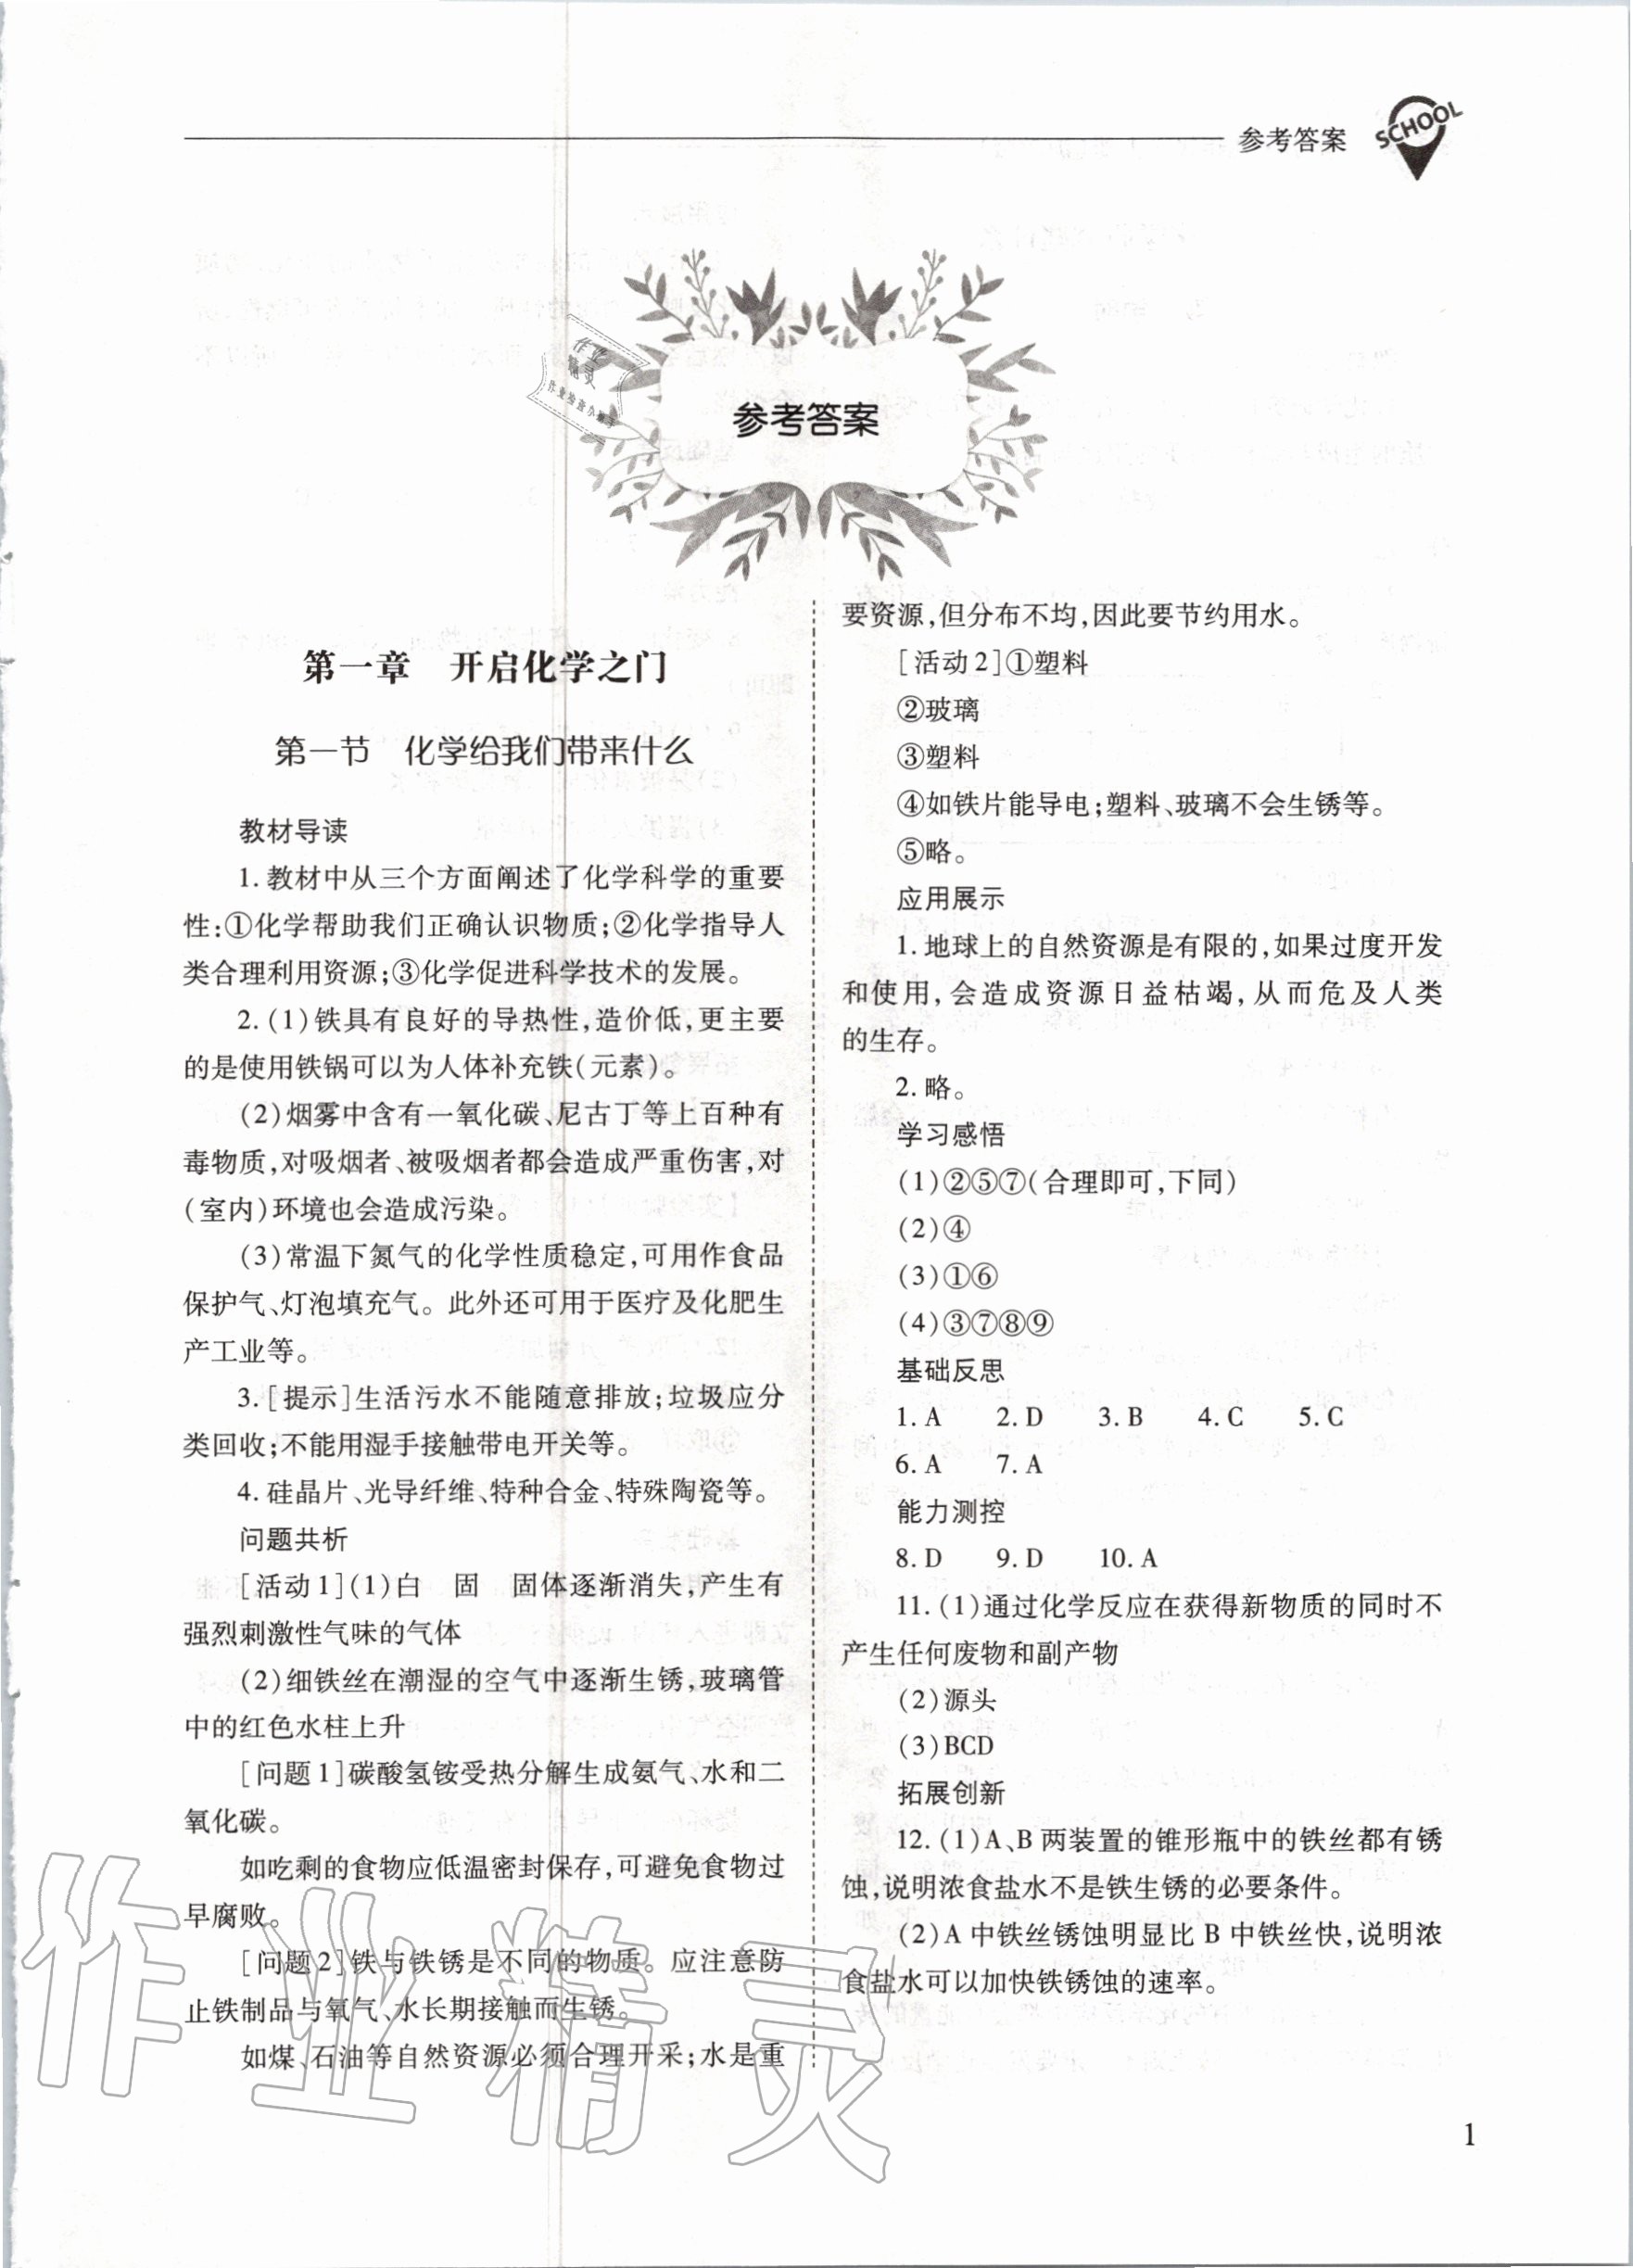 参考答案
SCHOOL
作业
精灵
参考答案
第一章 开启化学之门
第一节 化学给我们带来什么
教材导读
1. 教材中从三个方面阐述了化学科学的重要
性:①化学帮助我们正确认识物质;②化学指导人
类合理利用资源;③化学促进科学技术的发展。
2. (1)铁具有良好的导热性,造价低,更主要
的是使用铁锅可以为人体补充铁(元素)。
(2)烟雾中含有一氧化碳、尼古丁等上百种有
毒物质,对吸烟者、被吸烟者都会造成严重伤害,对
(室内)环境也会造成污染。
(3)常温下氮气的化学性质稳定,可用作食品
保护气、灯泡填充气。此外还可用于医疗及化肥生
产工业等。
3. [提示]生活污水不能随意排放;垃圾应分
类回收;不能用湿手接触带电开关等。
4. 硅晶片、光导纤维、特种合金、特殊陶瓷等。
问题共析
[活动1](1)白 固 固体逐渐消失,产生有
强烈刺激性气味的气体
(2)细铁丝在潮湿的空气中逐渐生锈,玻璃管
中的红色水柱上升
[问题1]碳酸氢铵受热分解生成氨气、水和二
氧化碳。
如吃剩的食物应低温密封保存,可避免食物过
早腐败。
[问题2]铁与铁锈是不同的物质。应注意防
止铁制品与氧气、水长期接触而生锈。
如煤、石油等自然资源必须合理开采;水是重
要资源,但分布不均,因此要节约用水。
[活动2]①塑料
②玻璃
③塑料
④如铁片能导电;塑料、玻璃不会生锈等。
⑤略。
应用展示
1. 地球上的自然资源是有限的,如果过度开发
和使用,会造成资源日益枯竭,从而危及人类
的生存。
2. 略。
学习感悟
(1)②⑤⑦(合理即可,下同)
(2)④
(3)①⑥
(4)③⑦⑧⑨
基础反思
1. A 2. D 3. B 4. C 5. C
6. A 7. A
能力测控
8. D 9. D 10. A
11. (1)通过化学反应在获得新物质的同时不
产生任何废物和副产物
(2)源头
(3)BCD
拓展创新
12. (1)A、B两装置的锥形瓶中的铁丝都有锈
蚀,说明浓食盐水不是铁生锈的必要条件。
(2)A中铁丝锈蚀明显比B中铁丝快,说明浓
食盐水可以加快铁锈蚀的速率。
作业精灵
1